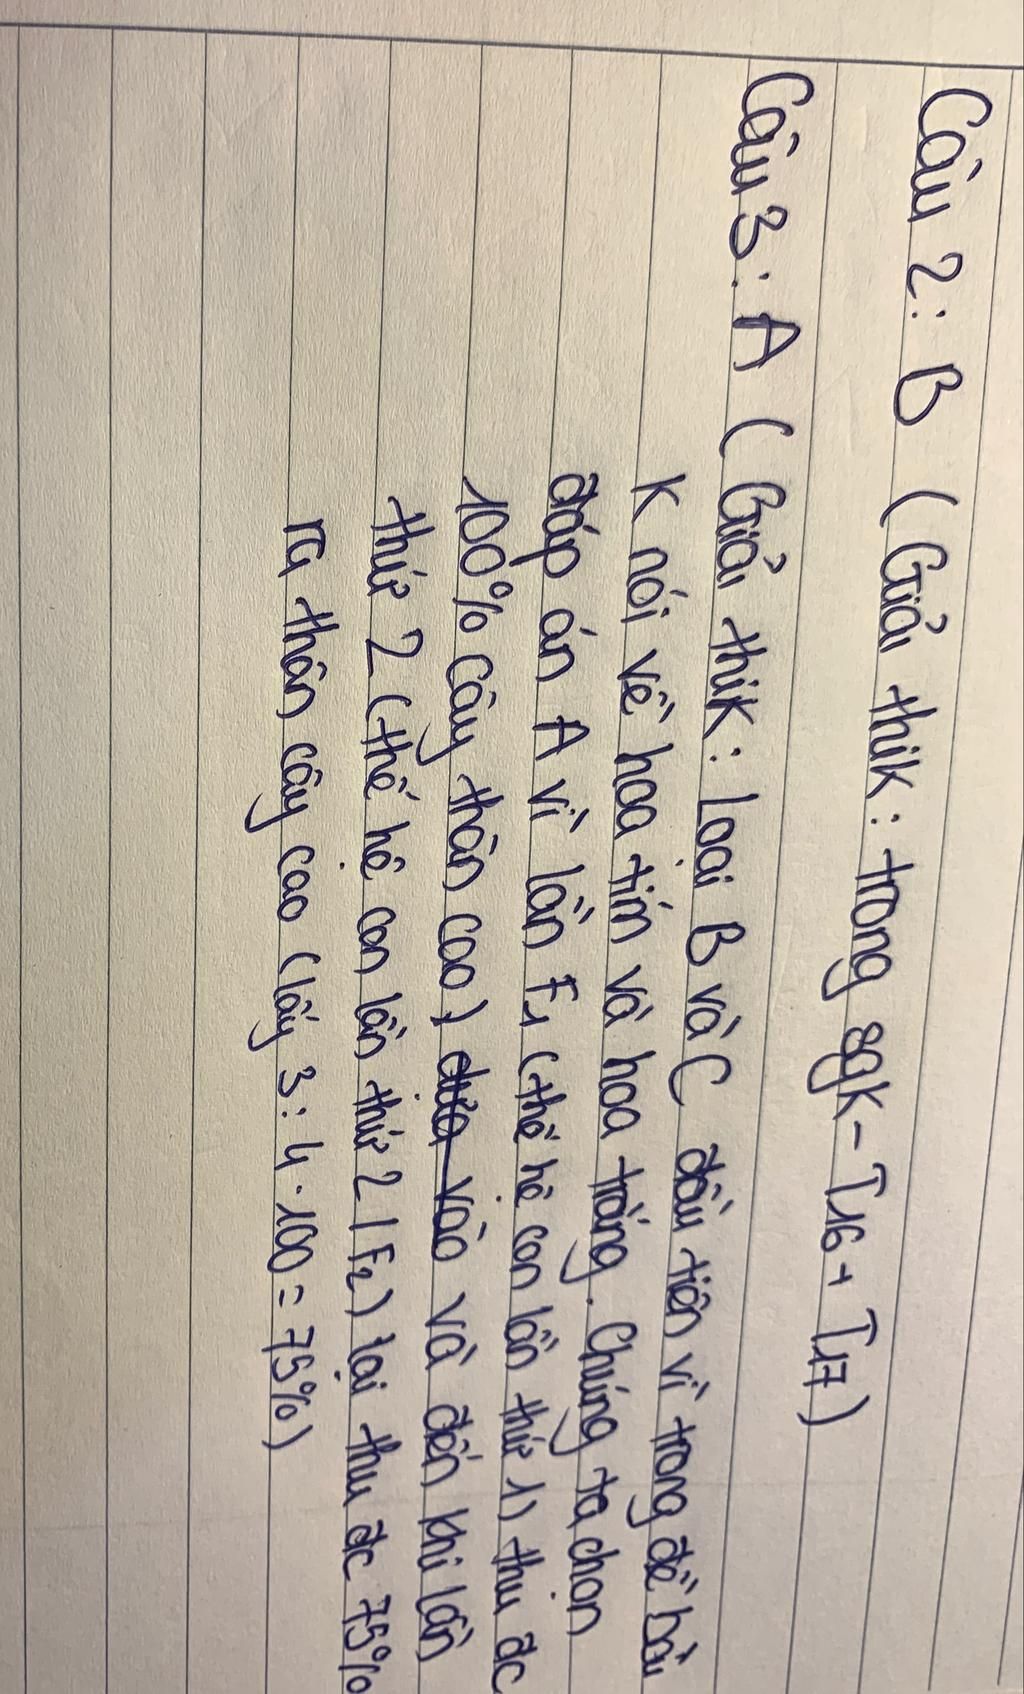 Câu 2: B (Giải thik: trong sgk - T16 + T17)
Câu 3: A (Giải thik: Loại B và C đầu tiên vì trong đề bài
K nói về hoa tím và hoa trắng. Chúng ta chọn
đáp án A vì lần F1 (thế hệ con lần thứ 1) thu đc
100% cây thân cao) đưa vào và đến khi lần
thứ 2 (thế hệ con lần thứ 2 | F2) lại thu đc 75%
ra thân cây cao (lấy 3 : 4 . 100 = 75%)